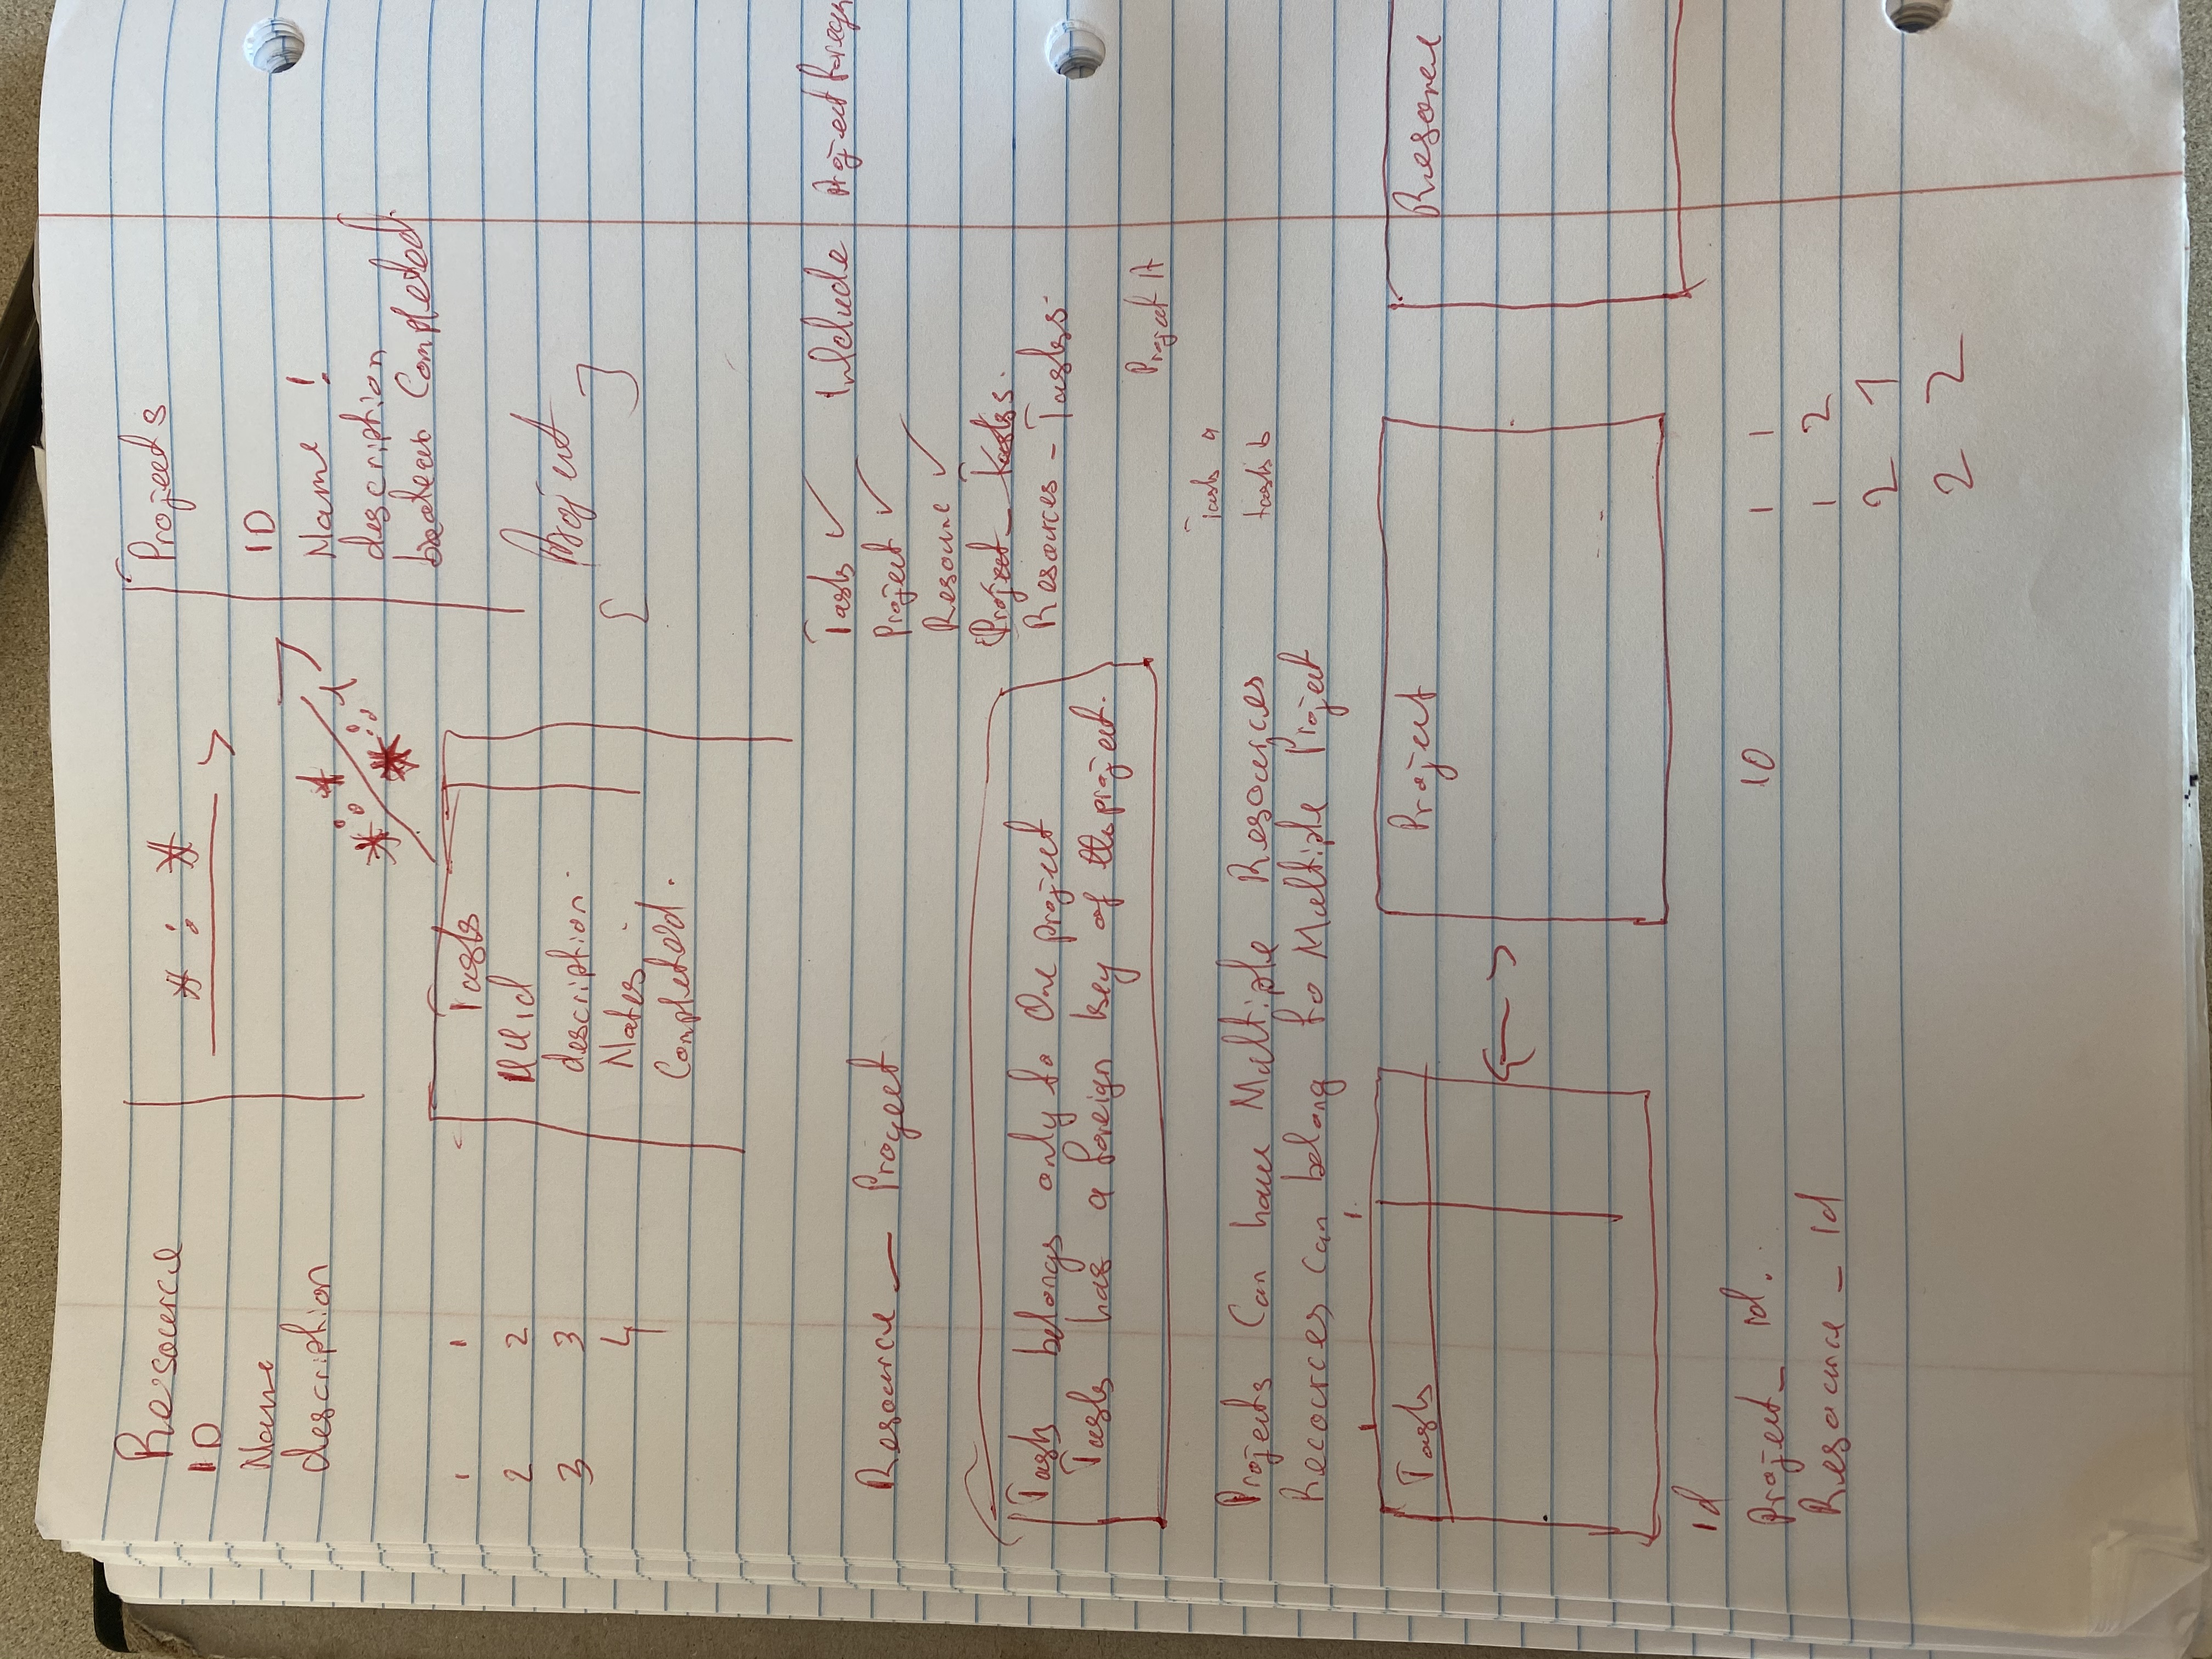 Resource
ID
Name
description
* : *
Projects
ID
Name !
description
boolean Completed
* : *
* : 1
1 1
2 2
3 3
4
Tasks
UUid
description
Notes
Completed.
Project
[ ]
Resource - Proyect
Tasks ✓ Include Project
Project ✓
Resource ✓
Project - Tasks.
Resources - Tasks
Task belongs only to One project
Tasks has a foreign key of the project.
Project A
Task a
task b
Projects Can have Multiple Resources
Recources can belong to Multiple Project
1 1
Task
Project
Resource
Id
Project_ id.
Resource - Id
10
1 1
1 2
2 1
2 2